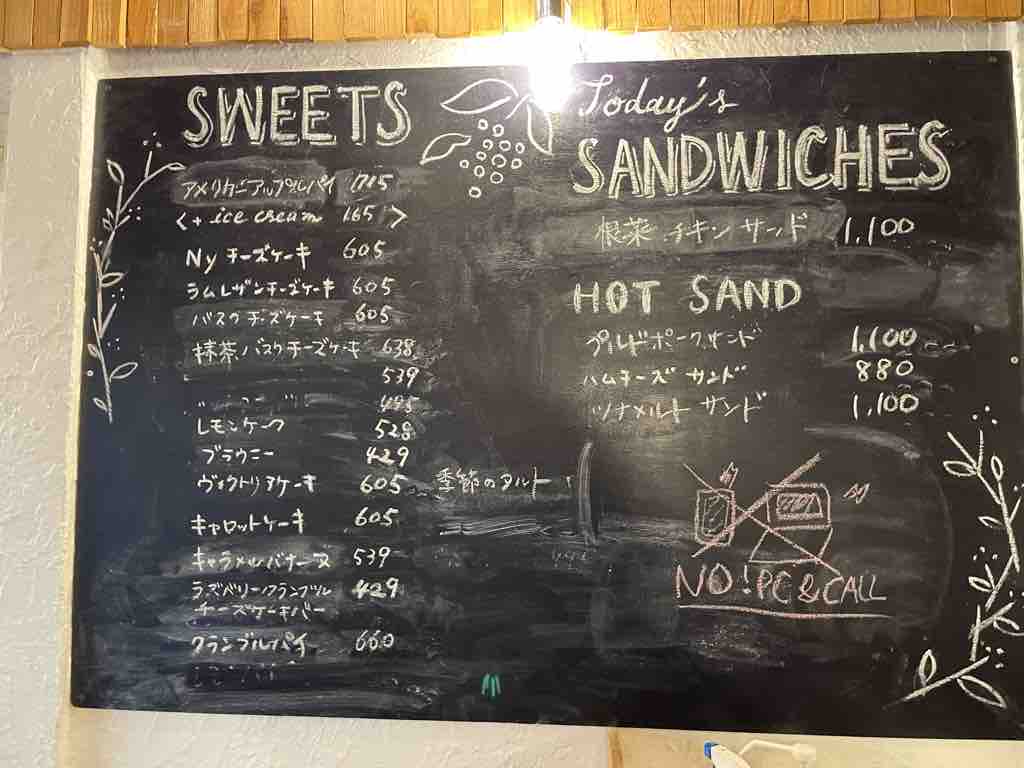 SWEETS
アメリカンアップルパイ 715
<+ ice cream 165>
Ny チーズケーキ 605
ラムレザンチーズケーキ 605
バスクチーズケーキ 605
抹茶バスクチーズケーキ 638
539
495
レモンケーク 528
ブラウニー 429
ヴィクトリアケーキ 605
キャロットケーキ 605
キャラメルバナーヌ 539
ラズベリークランブル 429
チーズケーキバー
クランブルパイ 660
季節のタルト
Today's
SANDWICHES
根菜チキンサンド 1,100
HOT SAND
プルドポークサンド 1,100
ハムチーズサンド 880
ツナメルトサンド 1,100
NO! PC & CALL